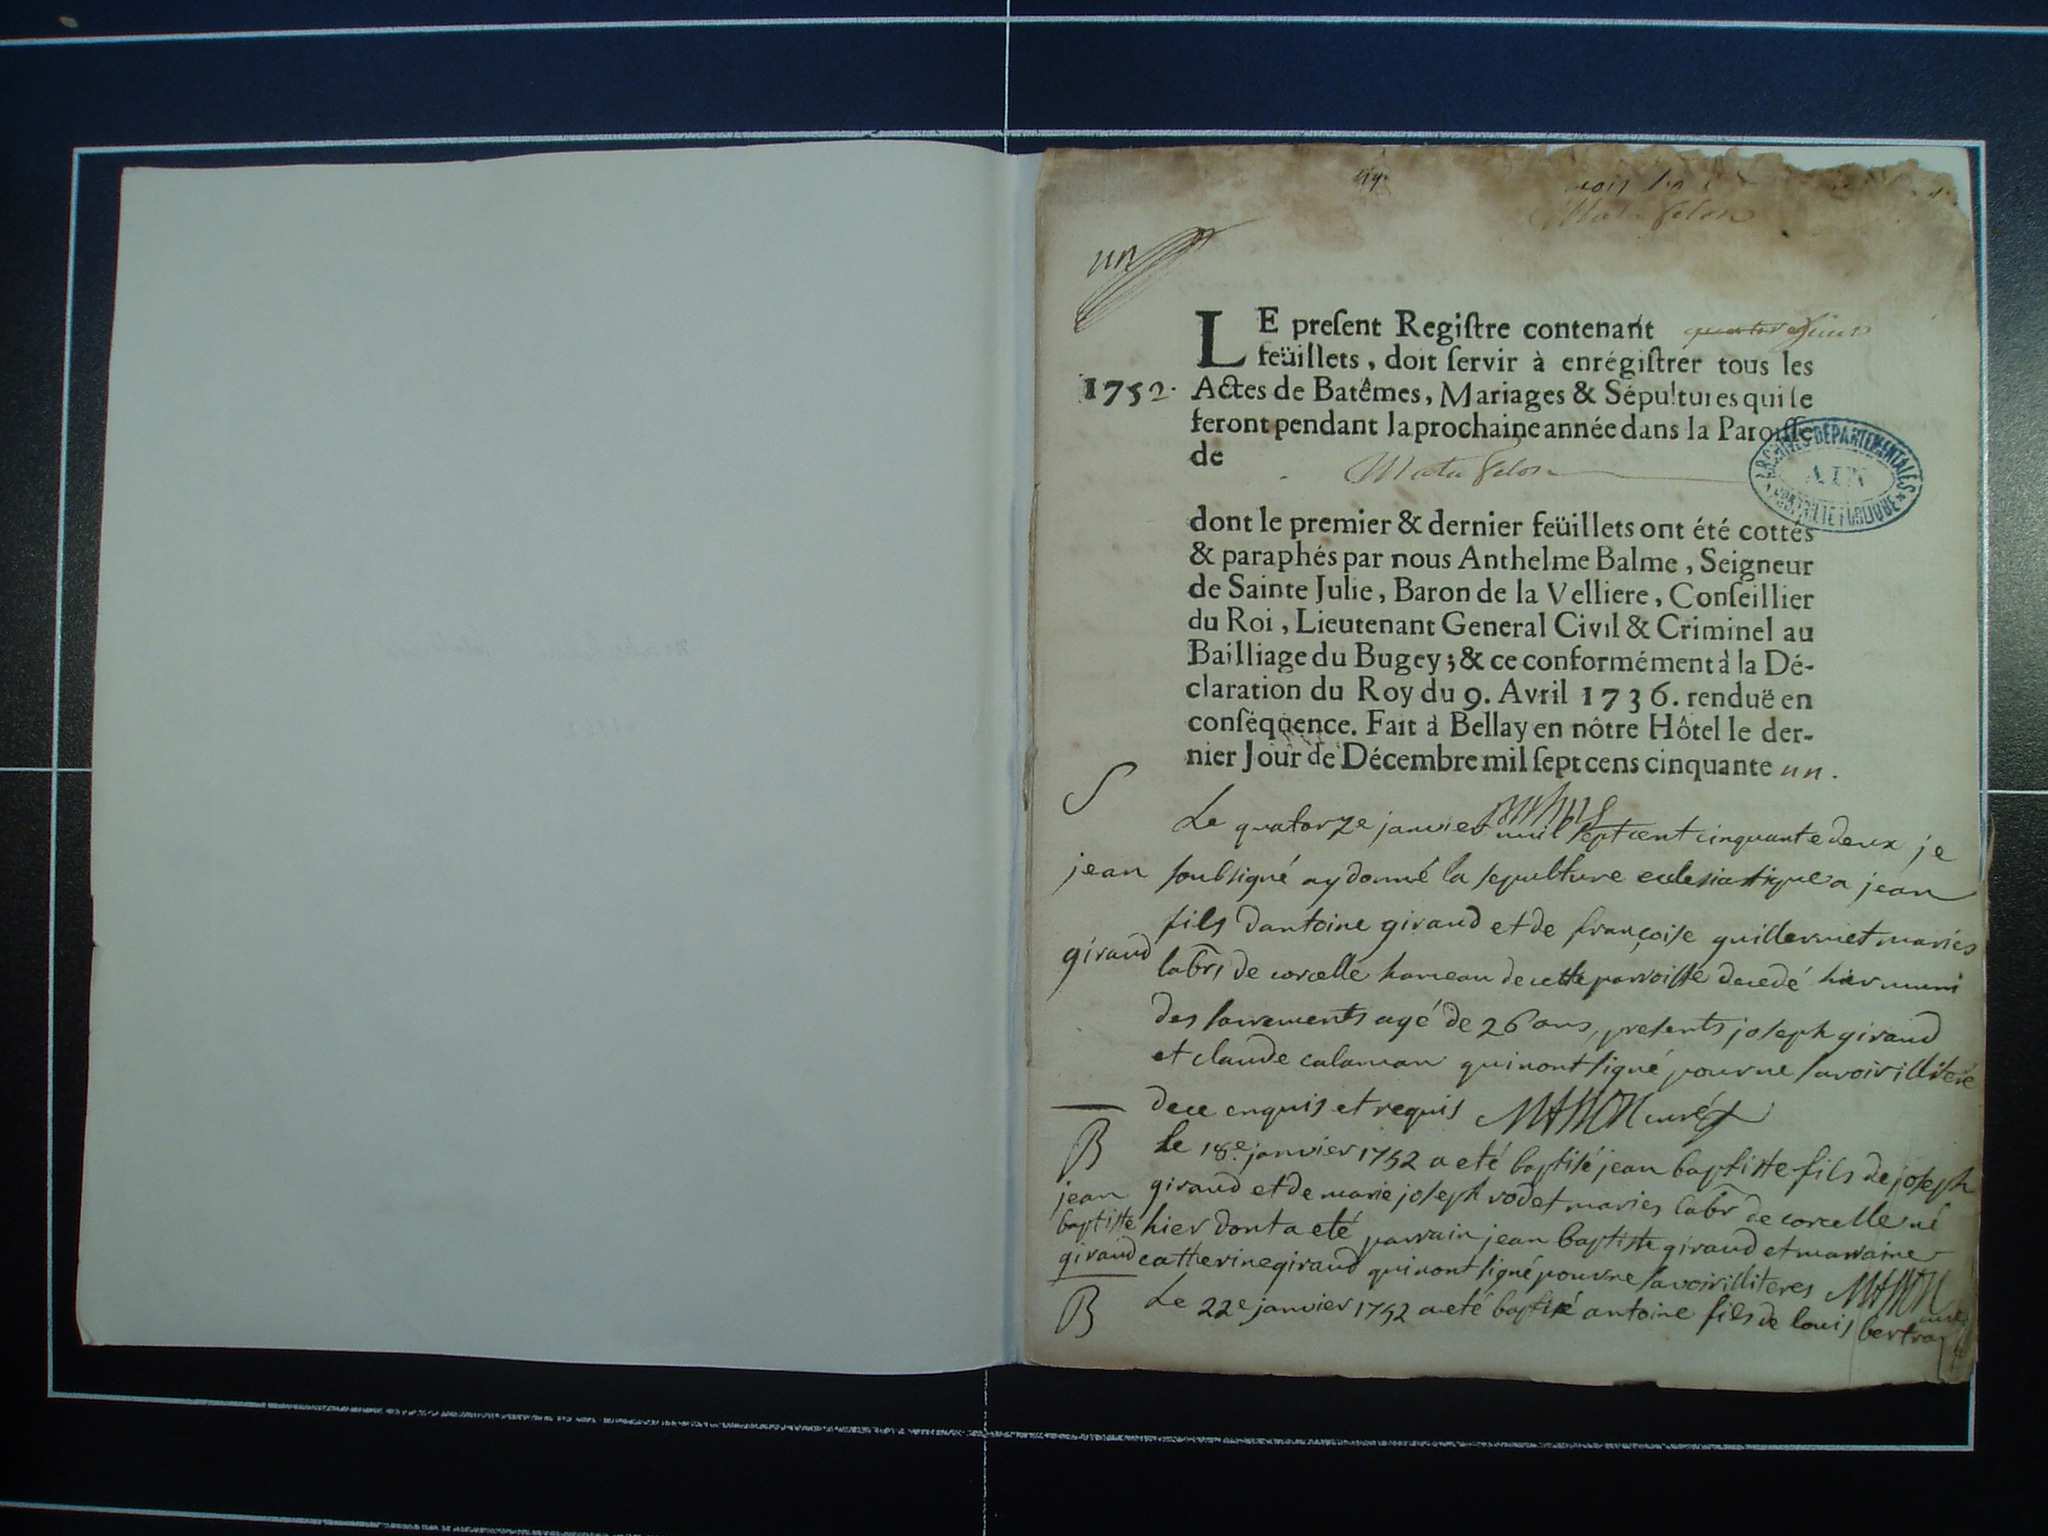 Matafelon
un
LE preſent Regiſtre contenant
feüillets, doit ſervir à enrégiſtrer tous les
1752. Actes de Batêmes, Mariages & Sépultures qui ſe
feront pendant la prochaine année dans la Paroiſſe
de Matafelon
ARCHIVES DÉPARTEMENTALES
AIN
dont le premier & dernier feüillets ont été cottés
& paraphés par nous Anthelme Balme, Seigneur
de Sainte Julie, Baron de la Velliere, Conſeillier
du Roi, Lieutenant General Civil & Criminel au
Bailliage du Bugey; & ce conformément à la Dé-
claration du Roy du 9. Avril 1736. renduë en
conſéquence. Fait à Bellay en nôtre Hôtel le der-
nier Jour de Décembre mil ſept cens cinquante un.
S
Le quatorze janvier mil sept cent cinquante deux je
jean soubsigné ay donné la sepulture eclesiastique a jean
fils dantoine giraud et de françoise guillermet mariés
giraud labrs de corcelle hameau de cette parroisse decedé hier muni
des sacrements agé de 26 ans, presents joseph giraud
et claude calaman qui nont signé pour ne savoir illiteré
de ce enquis et requis curé
B le 18e janvier 1752 a eté baptisé jean baptiste fils de joseph
jean giraud et de marie joseph rodet maries labr de corcelle né
baptiste hier dont a eté parrain jean baptiste giraud et marraine
giraud catherine giraud qui nont signé pour ne savoir illiteres
curé
B Le 22e janvier 1752 a eté baptisé antoine fils de louis